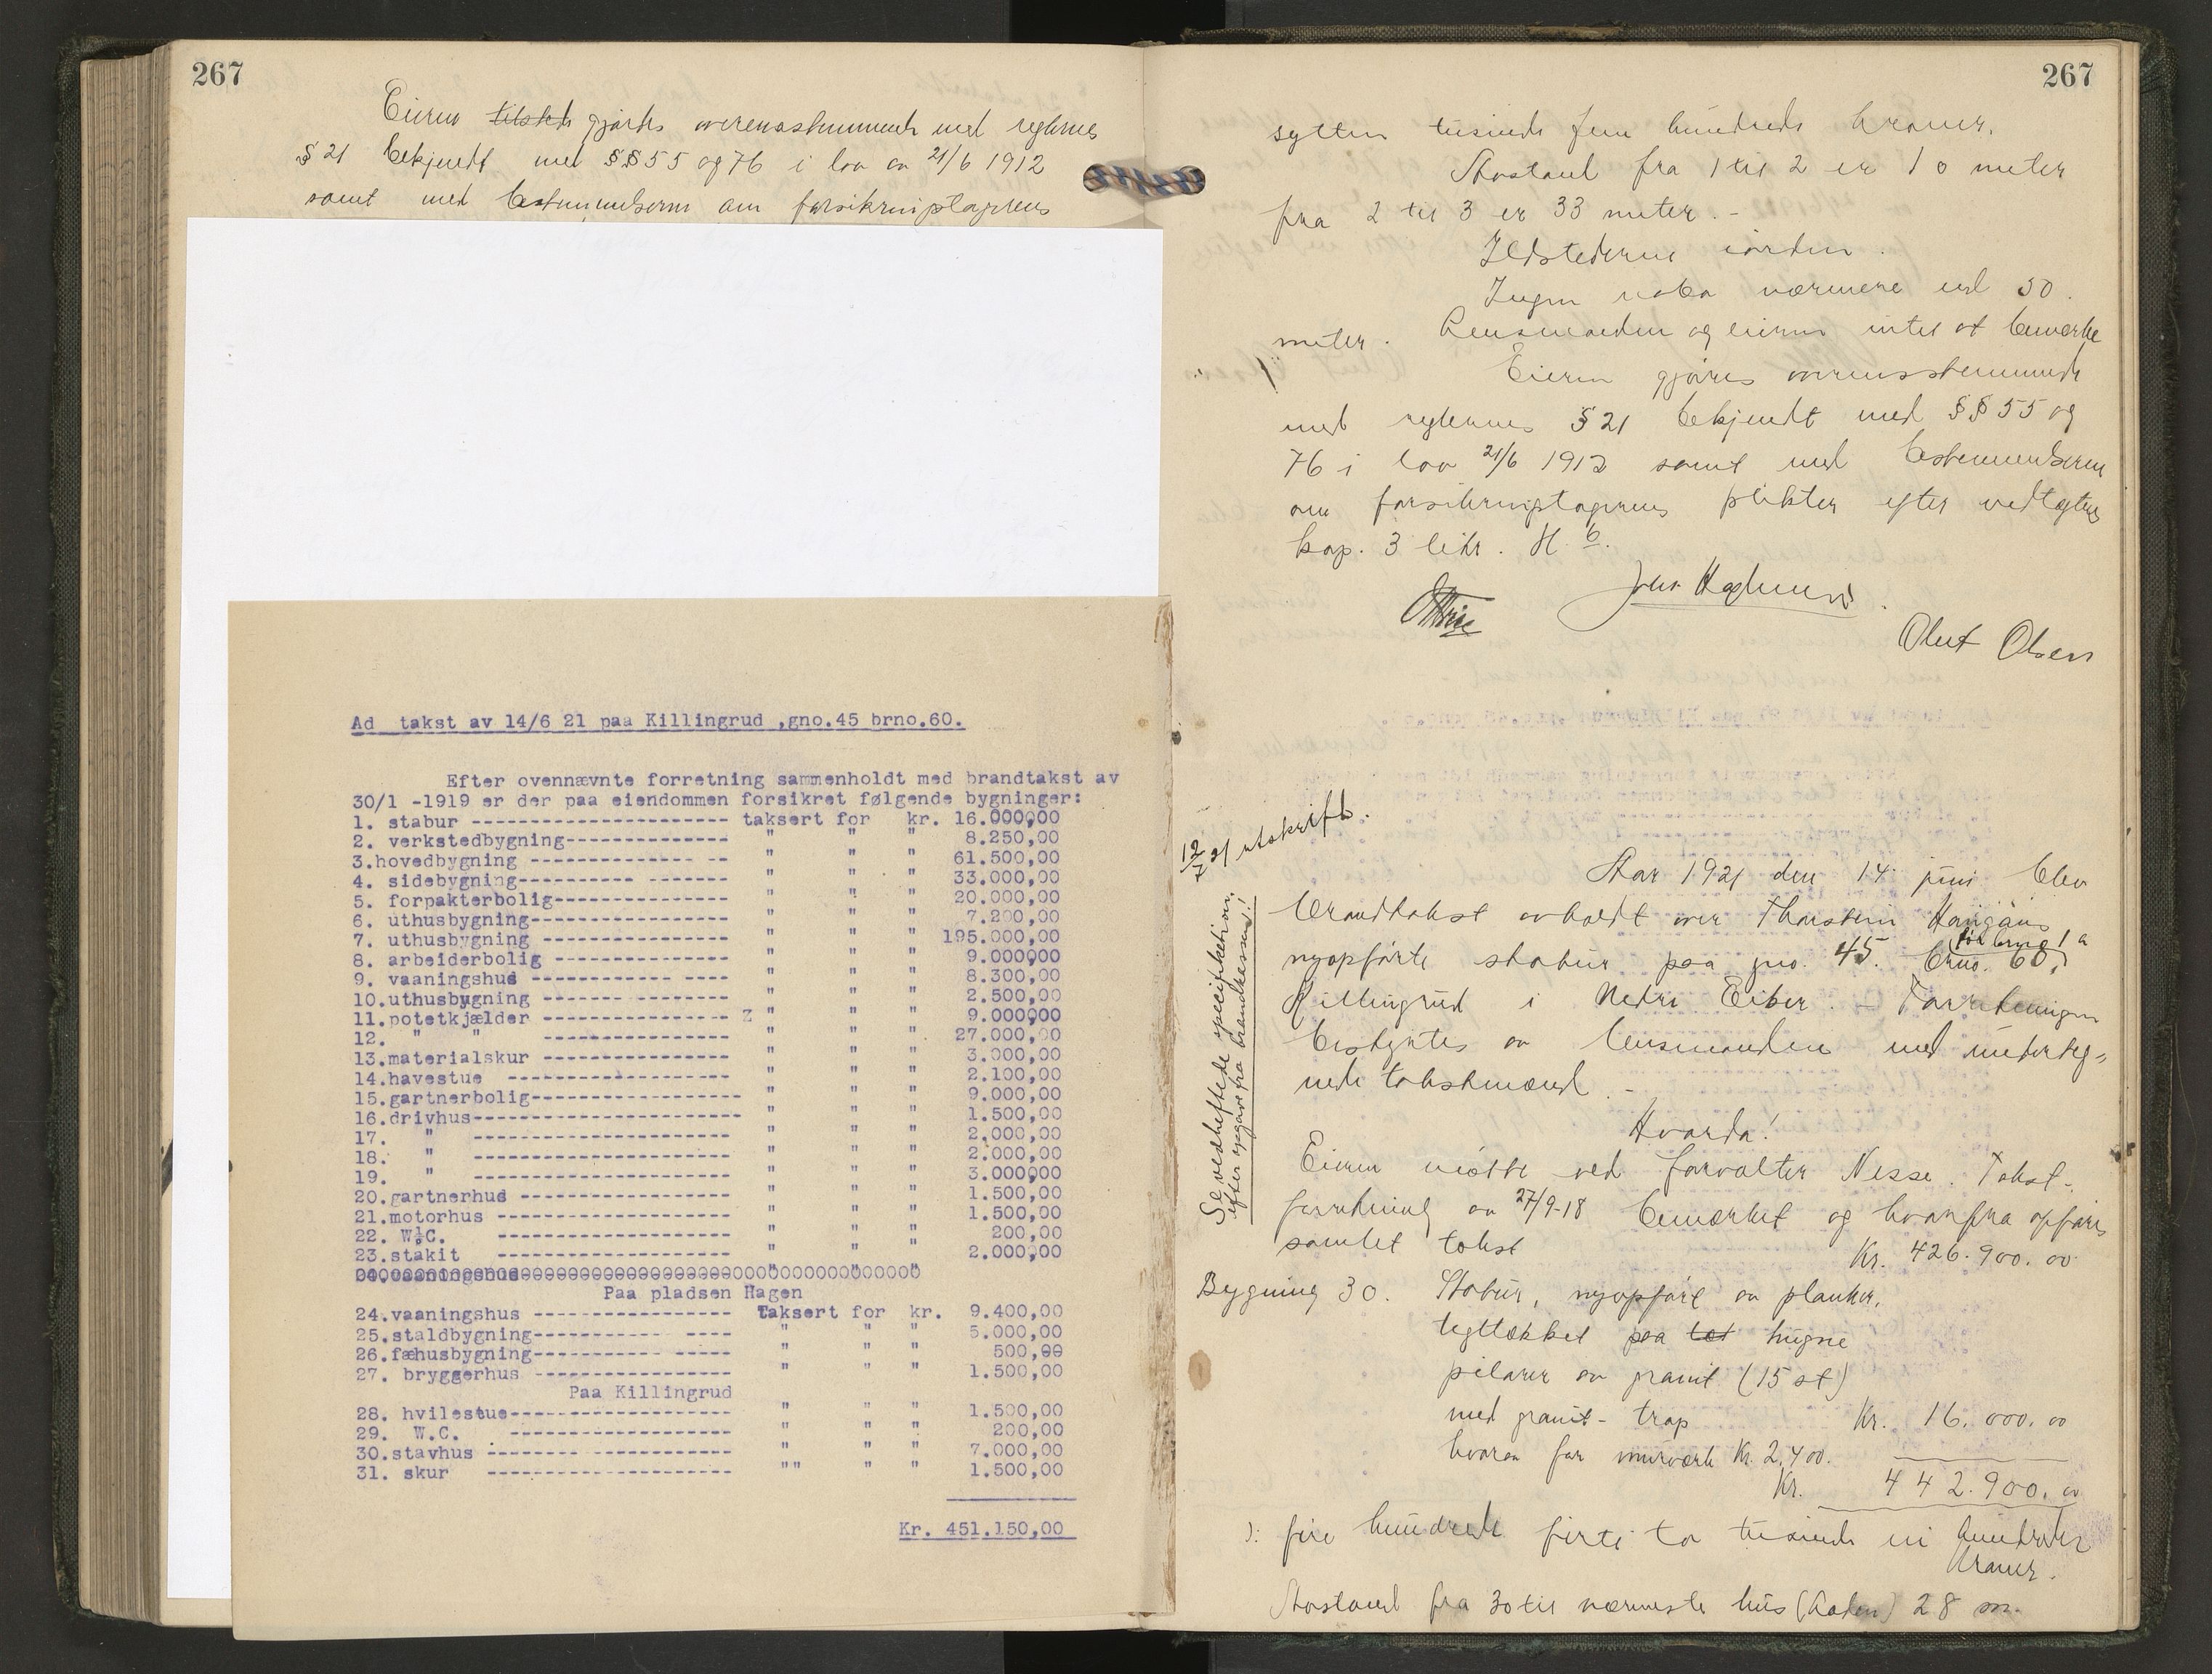 267
Eieren tilstede gjørdes overensstemmende med reglenes
§ 21 bekjendt med §§ 55 og 76 i lov av 21/6 1912
samt med bestemmelserne om forsikringstagerens
Ad takst av 14/6 21 paa Killingrud ,gno.45 brno.60.
Efter ovennævnte forretning sammenholdt med brandtakst av
30/1 -1919 er der paa eiendommen forsikret følgende bygninger:
1. stabur ---------------------- taksert for kr. 16.000,00
2. verkstedbygning-------------- " " " 8.250,00
3.hovedbygning -------------- -- " " " 61.500,00
4. sidebygning---------- ------- " " " 33.000,00
5. forpakterbolig--------------- " " " 20.000,00
6. uthusbygning----------------- " " " 7.200,00
7. uthusbygning ---------------- " " " 195.000,00
8. arbeiderbolig --------------- " " " 9.000,00
9. vaaningshus ------------ ---- " " " 8.300,00
10.uthusbygning ----------------- " " " 2.500,00
11.potetkjælder ---------------- Z " " " 9.000,00
12. " " ---------------- " " " 27.000,00
13.materialskur ----------------- " " " 3.000,00
14.havestue ------------------- " " " 2.100,00
15.gartnerbolig------------------ " " " 9.000,00
16.drivhus----------------------- " " " 1.500,00
17. " ---------------------- " " " 2.000,00
18. " ---------------------- " " " 2.000,00
19. " ---------------------- " " " 3.000,00
20.gartnerhus ------------------ " " " 1.500,00
21.motorhus -------------------- " " " 1.500,00
22. W.C. -------------------- " " " 200,00
23.stakit -------------------- " " " 2.000,00
Paa pladsen Hagen
24.vaaningshus ----------------- Taksert for kr. 9.400,00
25.staldbygning----------- ---- " " " 5.000,00
26.fæhusbygning---------- ----- " " " 500,00
27. bryggerhus ----------------- " " " 1.500,00
Paa Killingrud
28. hvilestue------------------- " " " 1.500,00
29. W.C. ------------------- " " " 200,00
30.stavhus -------- ------------- " " " 7.000,00
31. skur --------------------- "" " " 1.500,00
Kr. 451.150,00
267
sytten tusinde fem hundrede kroner.
Avstand fra 1 til 2 er 10 meter
fra 2 til 3 er 33 meter. -
Ildstederne i orden.
Ingen nabo nærmere end 50
meter. Lensmanden og eieren intet at bemerke
Eieren gjøres overensstemmende
med reglernes § 21 bekjendt med §§ 55 og
76 i lov 21/6 1912 samt med bestemmelserne
om forsikringstagerens plikter efter vedtægtens
kap. 3 litr. H. b.
Olut Olsen
12/7 21 utskrift.
Se vedheftede specifikation
efter opgave fra brandkassen!
Aar 1921 den 14 juni blev
brandtakst avholdt over Thorstein
nyopførte stabur paa gno. 45. brno. 60,
(før brno 1 a
Killingrud i Nedre Eiker. - Forretningen
bestyrtes av lensmanden med underteg-
nede takstmænd. -
Hvorda!
Eieren møtte ved forvalter Nesse. Takst-
forretning av 27/9-18 bemerket og hvorfra opføres
samlet takst Kr. 426.900.00
Bygning 30. Stabur, nyopført av planker,
tegltækket paa tæt hugne
pilarer av granit (15 st)
med granit-trap Kr. 16.000.00
hvorav for murverk Kr. 2,400.
Kr. 442.900.00
): fire hundrede firti to tusinde ni hundrede
kroner.
Avstand fra 30 til nærmeste hus (Laden) 28 m.